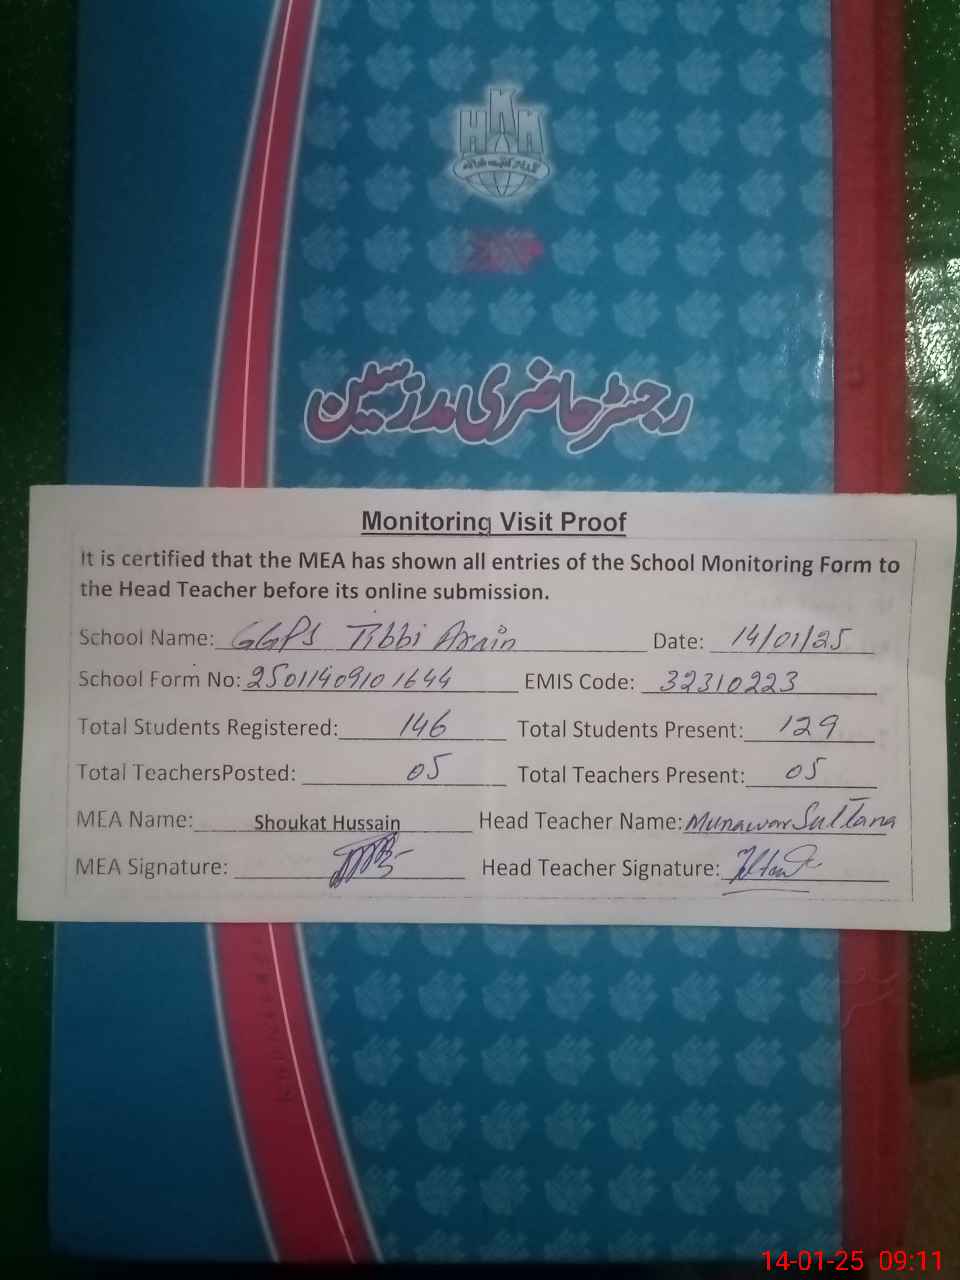 HKK
رجسٹر حاضری مدرسین
Monitoring Visit Proof
It is certified that the MEA has shown all entries of the School Monitoring Form to
the Head Teacher before its online submission.
School Name: GGPS Tibbi Arain Date: 14/01/25
School Form No: 25011409101644 EMIS Code: 32310223
Total Students Registered: 146 Total Students Present: 129
Total TeachersPosted: 05 Total Teachers Present: 05
MEA Name: Shoukat Hussain Head Teacher Name: Munawar Sultana
MEA Signature: Head Teacher Signature:
14-01-25 09:11